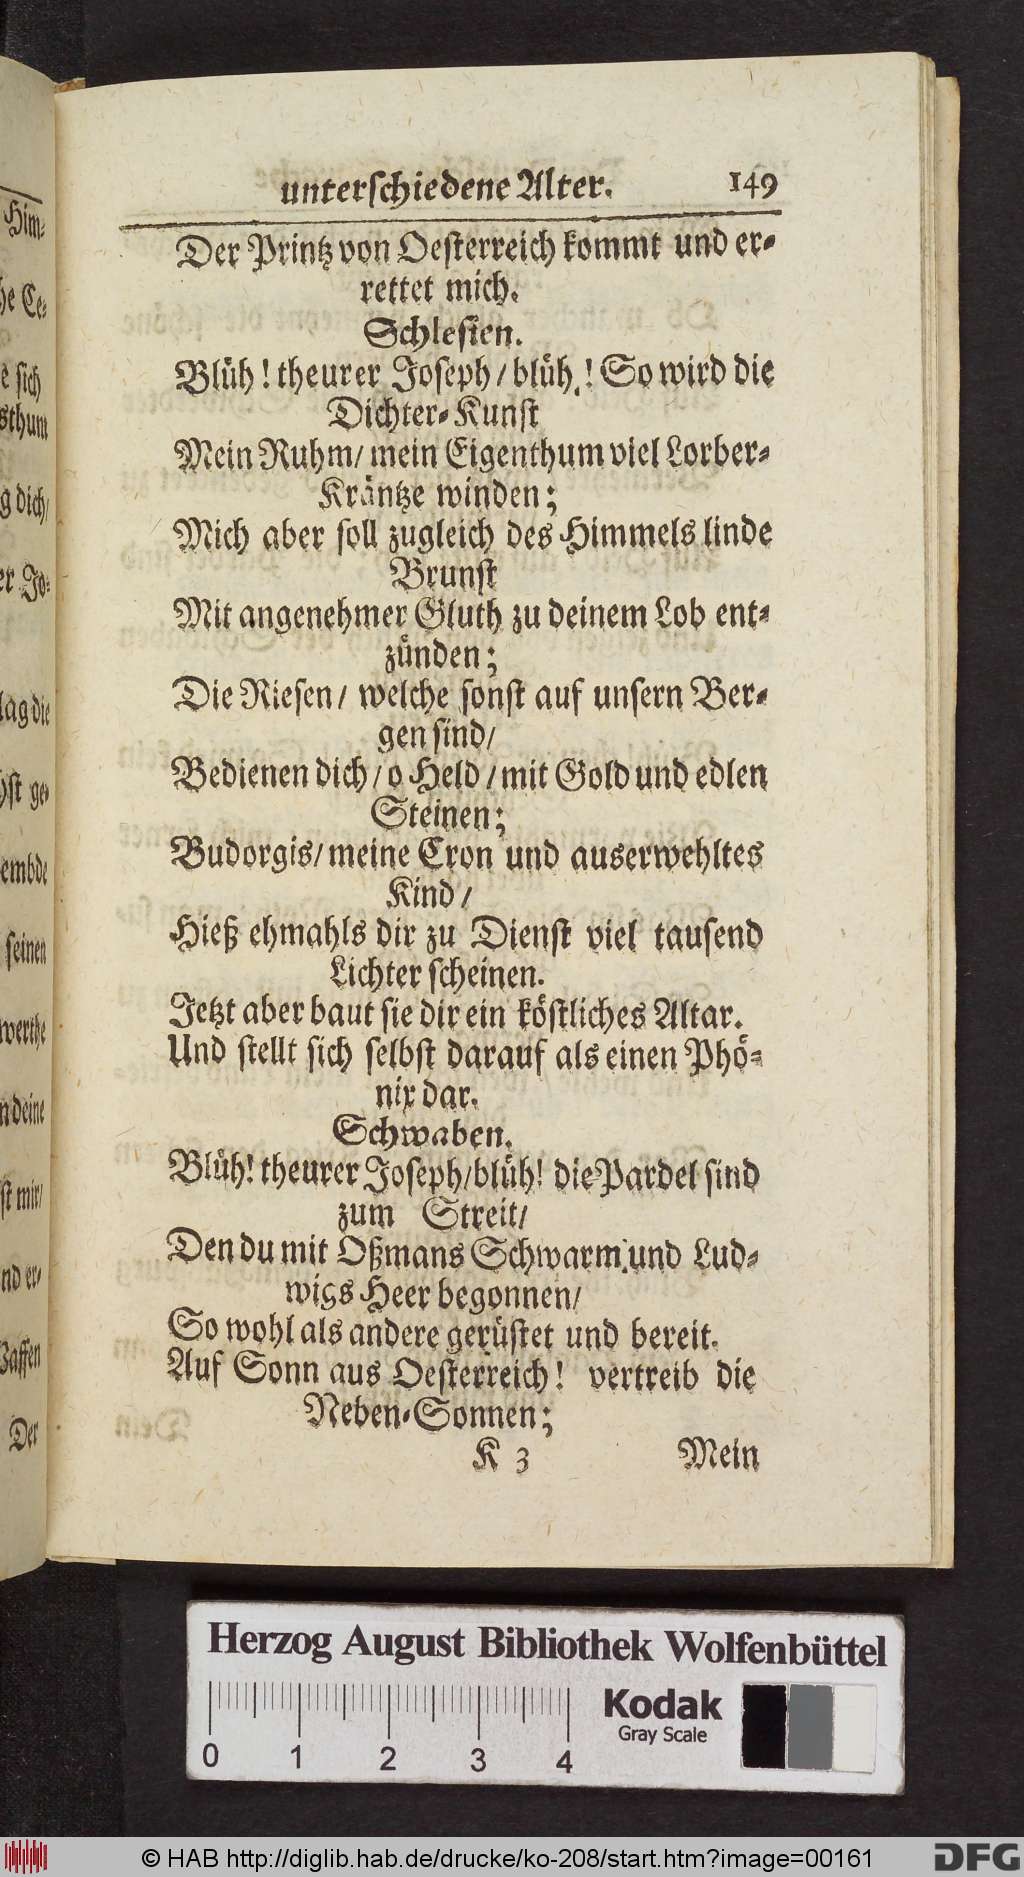 Him-
he Ce-
e sich
sthum
g dich/
er Jo-
lag die
hst ge-
embde
seinen
werthe
n deine
st mir/
nd er-
Waffen
Der
unterschiedene Alter. 149
Der Printz von Oesterreich kommt und er-
rettet mich.
Schlesien.
Blüh! theurer Joseph/ blüh! So wird die
Dichter-Kunst
Mein Ruhm/ mein Eigenthum viel Lorber-
Kräntze winden;
Mich aber soll zugleich des Himmels linde
Brunst
Mit angenehmer Gluth zu deinem Lob ent-
zünden;
Die Riesen/ welche sonst auf unsern Ber-
gen sind/
Bedienen dich/ o Held/ mit Gold und edlen
Steinen;
Budorgis/ meine Cron und auserwehltes
Kind/
Hieß ehmahls dir zu Dienst viel tausend
Lichter scheinen.
Jetzt aber baut sie dir ein köstliches Altar.
Und stellt sich selbst darauf als einen Phö-
nix dar.
Schwaben.
Blüh! theurer Joseph/ blüh! die Pardel sind
zum Streit/
Den du mit Oßmans Schwarm und Lud-
wigs Heer begonnen/
So wohl als andere gerüstet und bereit.
Auf Sonn aus Oesterreich! vertreib die
Neben-Sonnen;
K 3 Mein
Herzog August Bibliothek Wolfenbüttel
Kodak
Gray Scale
0 1 2 3 4
© HAB http://diglib.hab.de/drucke/ko-208/start.htm?image=00161
DFG